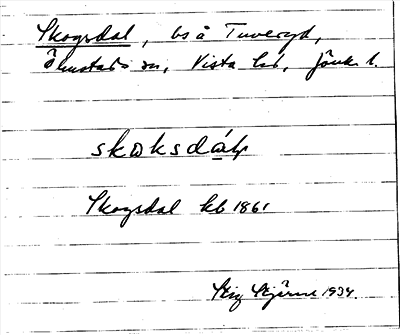 Skogsdal, bs å Tuveryd,
Ölmstads sn, Vista hd, Jönk. l.
skoksdálp
Skogsdal kb 1861
Stig Stjärne 1934.